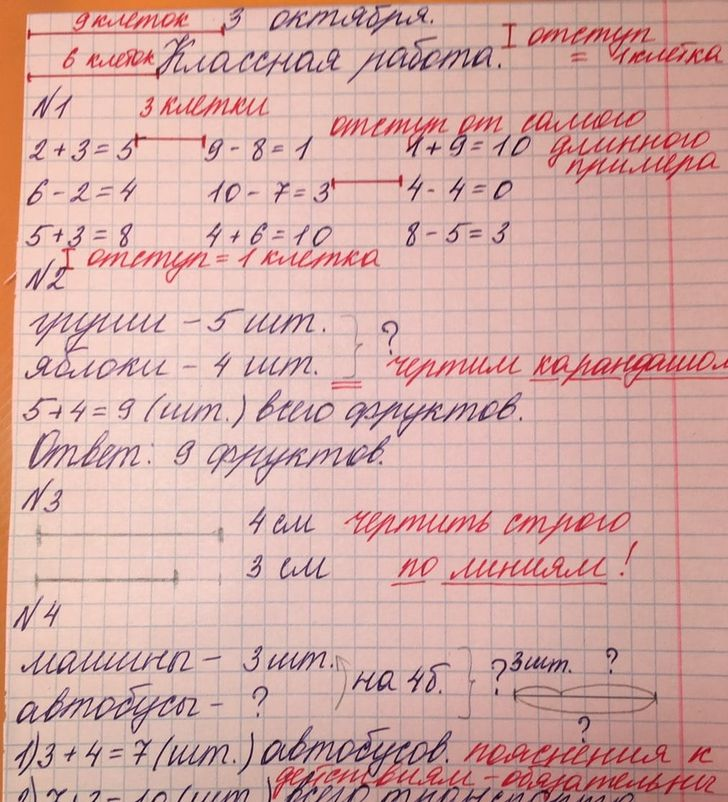 9 клеток 3 октября.
6 клеток Классная работа. отступ = 1 клетка
N1 3 клетки
отступ от самого длинного примера
2 + 3 = 5 9 - 8 = 1 1 + 9 = 10
6 - 2 = 4 10 - 7 = 3 4 - 4 = 0
5 + 3 = 8 4 + 6 = 10 8 - 5 = 3
отступ = 1 клетка
N2
груши - 5 шт.
яблоки - 4 шт. } ? чертим карандашом
5 + 4 = 9 (шт.) всего фруктов.
Ответ: 9 фруктов.
N3
4 см чертить строго
3 см по линиям!
N4
машины - 3 шт.
автобусы - ? на 4 б. } ? 3 шт. ? ?
1) 3 + 4 = 7 (шт.) автобусов. пояснения к
действиям - обязательны